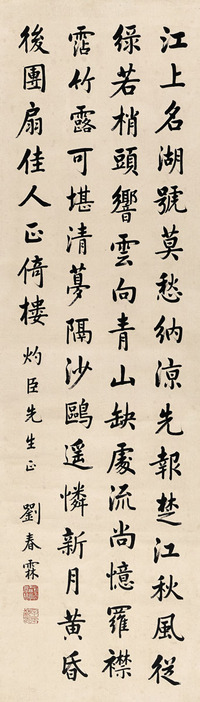 江上名湖號莫愁納涼先報楚江秋風從
綠若梢頭響雲向青山缺處流尚憶羅襟
霑竹露可堪清夢隔沙鷗遥憐新月黃昏
後團扇佳人正倚樓
灼臣先生正
劉春霖